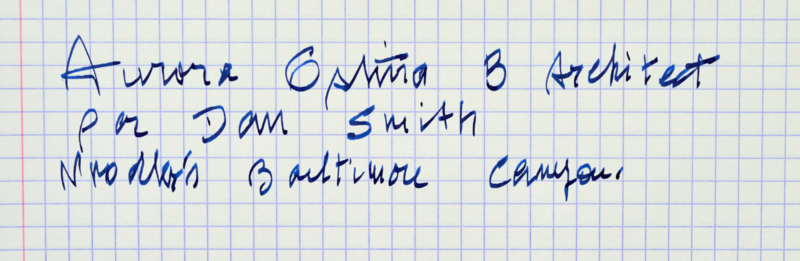 Aurora Optima B Architect
por Dan Smith
Baltimore Canyon.